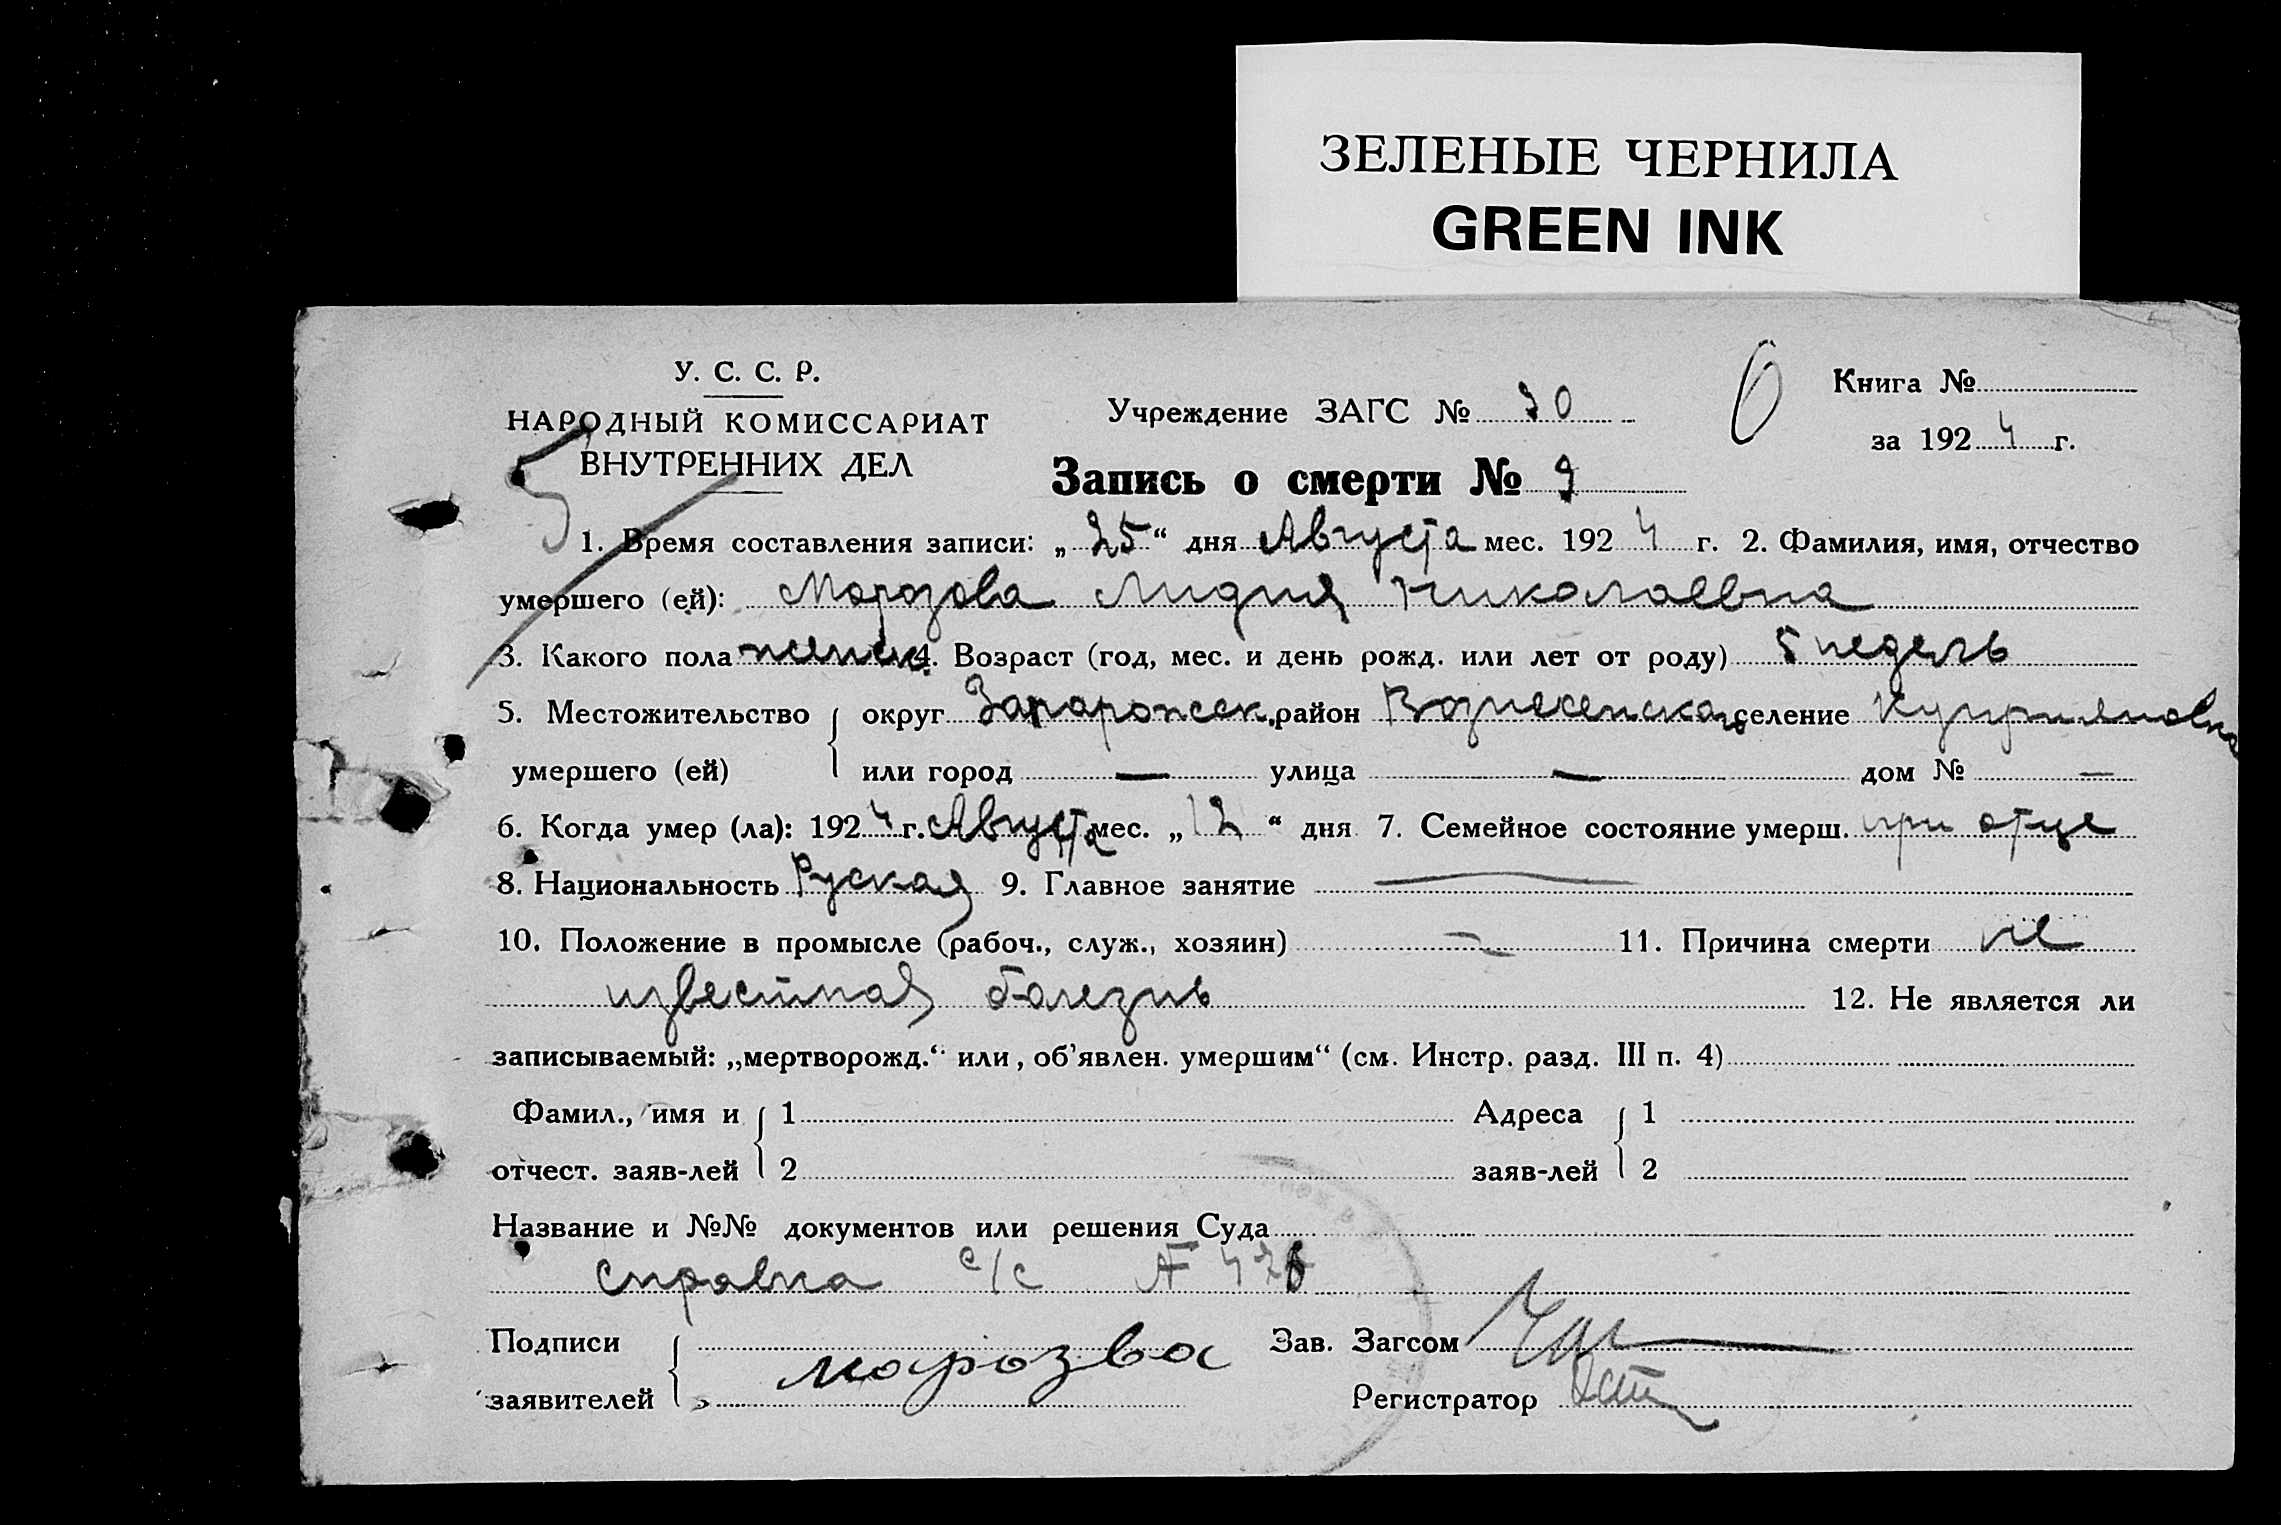 ЗЕЛЕНЫЕ ЧЕРНИЛА
GREEN INK
У. С. С. Р.
НАРОДНЫЙ КОМИССАРИАТ
ВНУТРЕННИХ ДЕЛ
Учреждение ЗАГС № 30
6
Книга №
за 1924 г.
Запись о смерти № 9
5
1. Время составления записи: „25“ дня Августа мес. 1924 г. 2. Фамилия, имя, отчество
умершего (ей): Морозова Лидия Николаевна
3. Какого пола женск 4. Возраст (год, мес. и день рожд. или лет от роду) 5 недель
5. Местожительство округ Запарожск. район Вознесенского селение Куприяновка
умершего (ей) или город — улица — дом № —
6. Когда умер (ла): 1924 г. Августа мес. „12“ дня 7. Семейное состояние умерш. при отце
8. Национальность Руская 9. Главное занятие —
10. Положение в промысле (рабоч., служ., хозяин) — 11. Причина смерти не
известная болезнь 12. Не является ли
записываемый: „мертворожд.“ или, об’явлен. умершим“ (см. Инстр. разд. III п. 4)
Фамил., имя и 1 Адреса 1
отчест. заяв-лей 2 заяв-лей 2
Название и №№ документов или решения Суда
справка с/с №
Подписи Зав. Загсом
заявителей морозва Регистратор